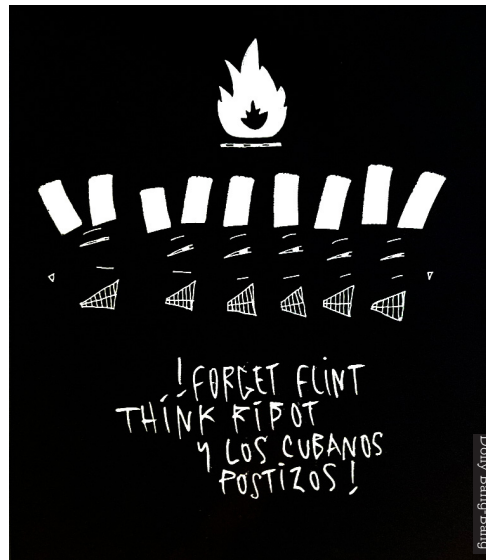 !FORGET FLINT
THINK RIBOT
Y LOS CUBANOS
POSTIZOS!
Dolly Bang-Bang